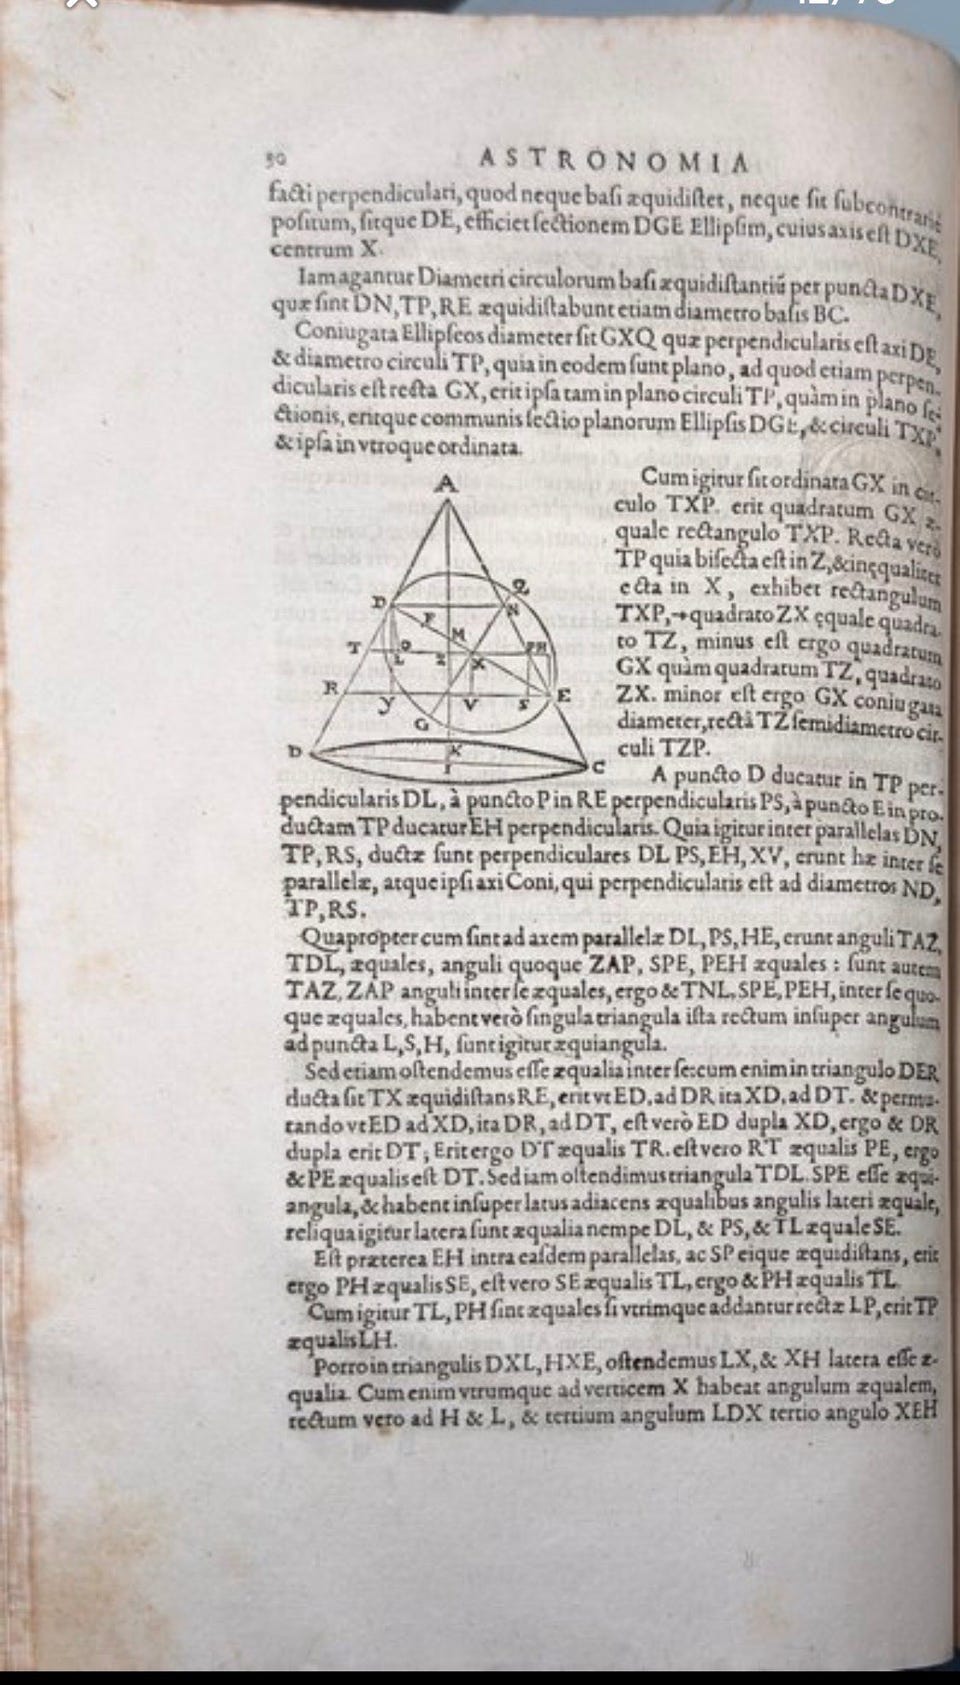 50 ASTRONOMIA
facti perpendiculari, quod neque basi æquidistet, neque sit subcontrarie
positum, sitque DE, efficiet sectionem DGE Ellipsim, cuius axis est DXE,
centrum X.
Iam agantur Diametri circulorum basi æquidistantiũ per puncta DXE,
quæ sint DN, TP, RE æquidistabunt etiam diametro basis BC.
Coniugata Ellipseos diameter sit GXQ quæ perpendicularis est axi DE,
& diametro circuli TP, quia in eodem sunt plano, ad quod etiam perpen-
dicularis est recta GX, erit ipsa tam in plano circuli TP, quàm in plano se-
ctionis, eritque communis sectio planorum Ellipsis DGE, & circuli TXP,
& ipsa in vtroque ordinata.
Cum igitur sit ordinata GX in cir-
culo TXP. erit quadratum GX æ-
quale rectangulo TXP. Recta verò
TP quia bisecta est in Z, & inęqualiter
ecta in X, exhibet rectangulum
TXP,→quadrato ZX ęquale quadra-
to TZ, minus est ergo quadratum
GX quàm quadratum TZ, quadrato
ZX. minor est ergo GX coniugata
diameter, rectâ TZ semidiametro cir-
culi TZP.
A
D Q N
F
T O M PH
L Z X
R E
Y V S
G
D K C
I
A puncto D ducatur in TP per-
pendicularis DL, à puncto P in RE perpendicularis PS, à puncto E in pro-
ductam TP ducatur EH perpendicularis. Quia igitur inter parallelas DN,
TP, RS, ductæ sunt perpendiculares DL PS, EH, XV, erunt hæ inter se
parallelæ, atque ipsi axi Coni, qui perpendicularis est ad diametros ND,
TP, RS.
Quapropter cum sint ad axem parallelæ DL, PS, HE, erunt anguli TAZ,
TDL, æquales, anguli quoque ZAP, SPE, PEH æquales : sunt autem
TAZ, ZAP anguli inter se æquales, ergo & TNL, SPE, PEH, inter se quo-
que æquales, habent verò singula triangula ista rectum insuper angulum
ad puncta L, S, H, sunt igitur æquiangula.
Sed etiam ostendemus esse æqualia inter se: cum enim in triangulo DER
ducta sit TX æquidistans RE, erit vt ED, ad DR ita XD, ad DT. & permu-
tando vt ED ad XD, ita DR, ad DT, est verò ED dupla XD, ergo & DR
dupla erit DT; Erit ergo DT æqualis TR. est vero RT æqualis PE, ergo
& PE æqualis est DT. Sed iam ostendimus triangula TDL. SPE esse æqui-
angula, & habent insuper latus adiacens æqualibus angulis lateri æquale,
reliqua igitur latera sunt æqualia nempe DL, & PS, & TL æquale SE.
Est præterea EH intra easdem parallelas, ac SP eique æquidistans, erit
ergo PH æqualis SE, est vero SE æqualis TL, ergo & PH æqualis TL.
Cum igitur TL, PH sint æquales si vtrimque addantur rectæ LP, erit TP
æqualis LH.
Porro in triangulis DXL, HXE, ostendemus LX, & XH latera esse æ-
qualia. Cum enim vtrumque ad verticem X habeat angulum æqualem,
rectum vero ad H & L, & tertium angulum LDX tertio angulo XEH